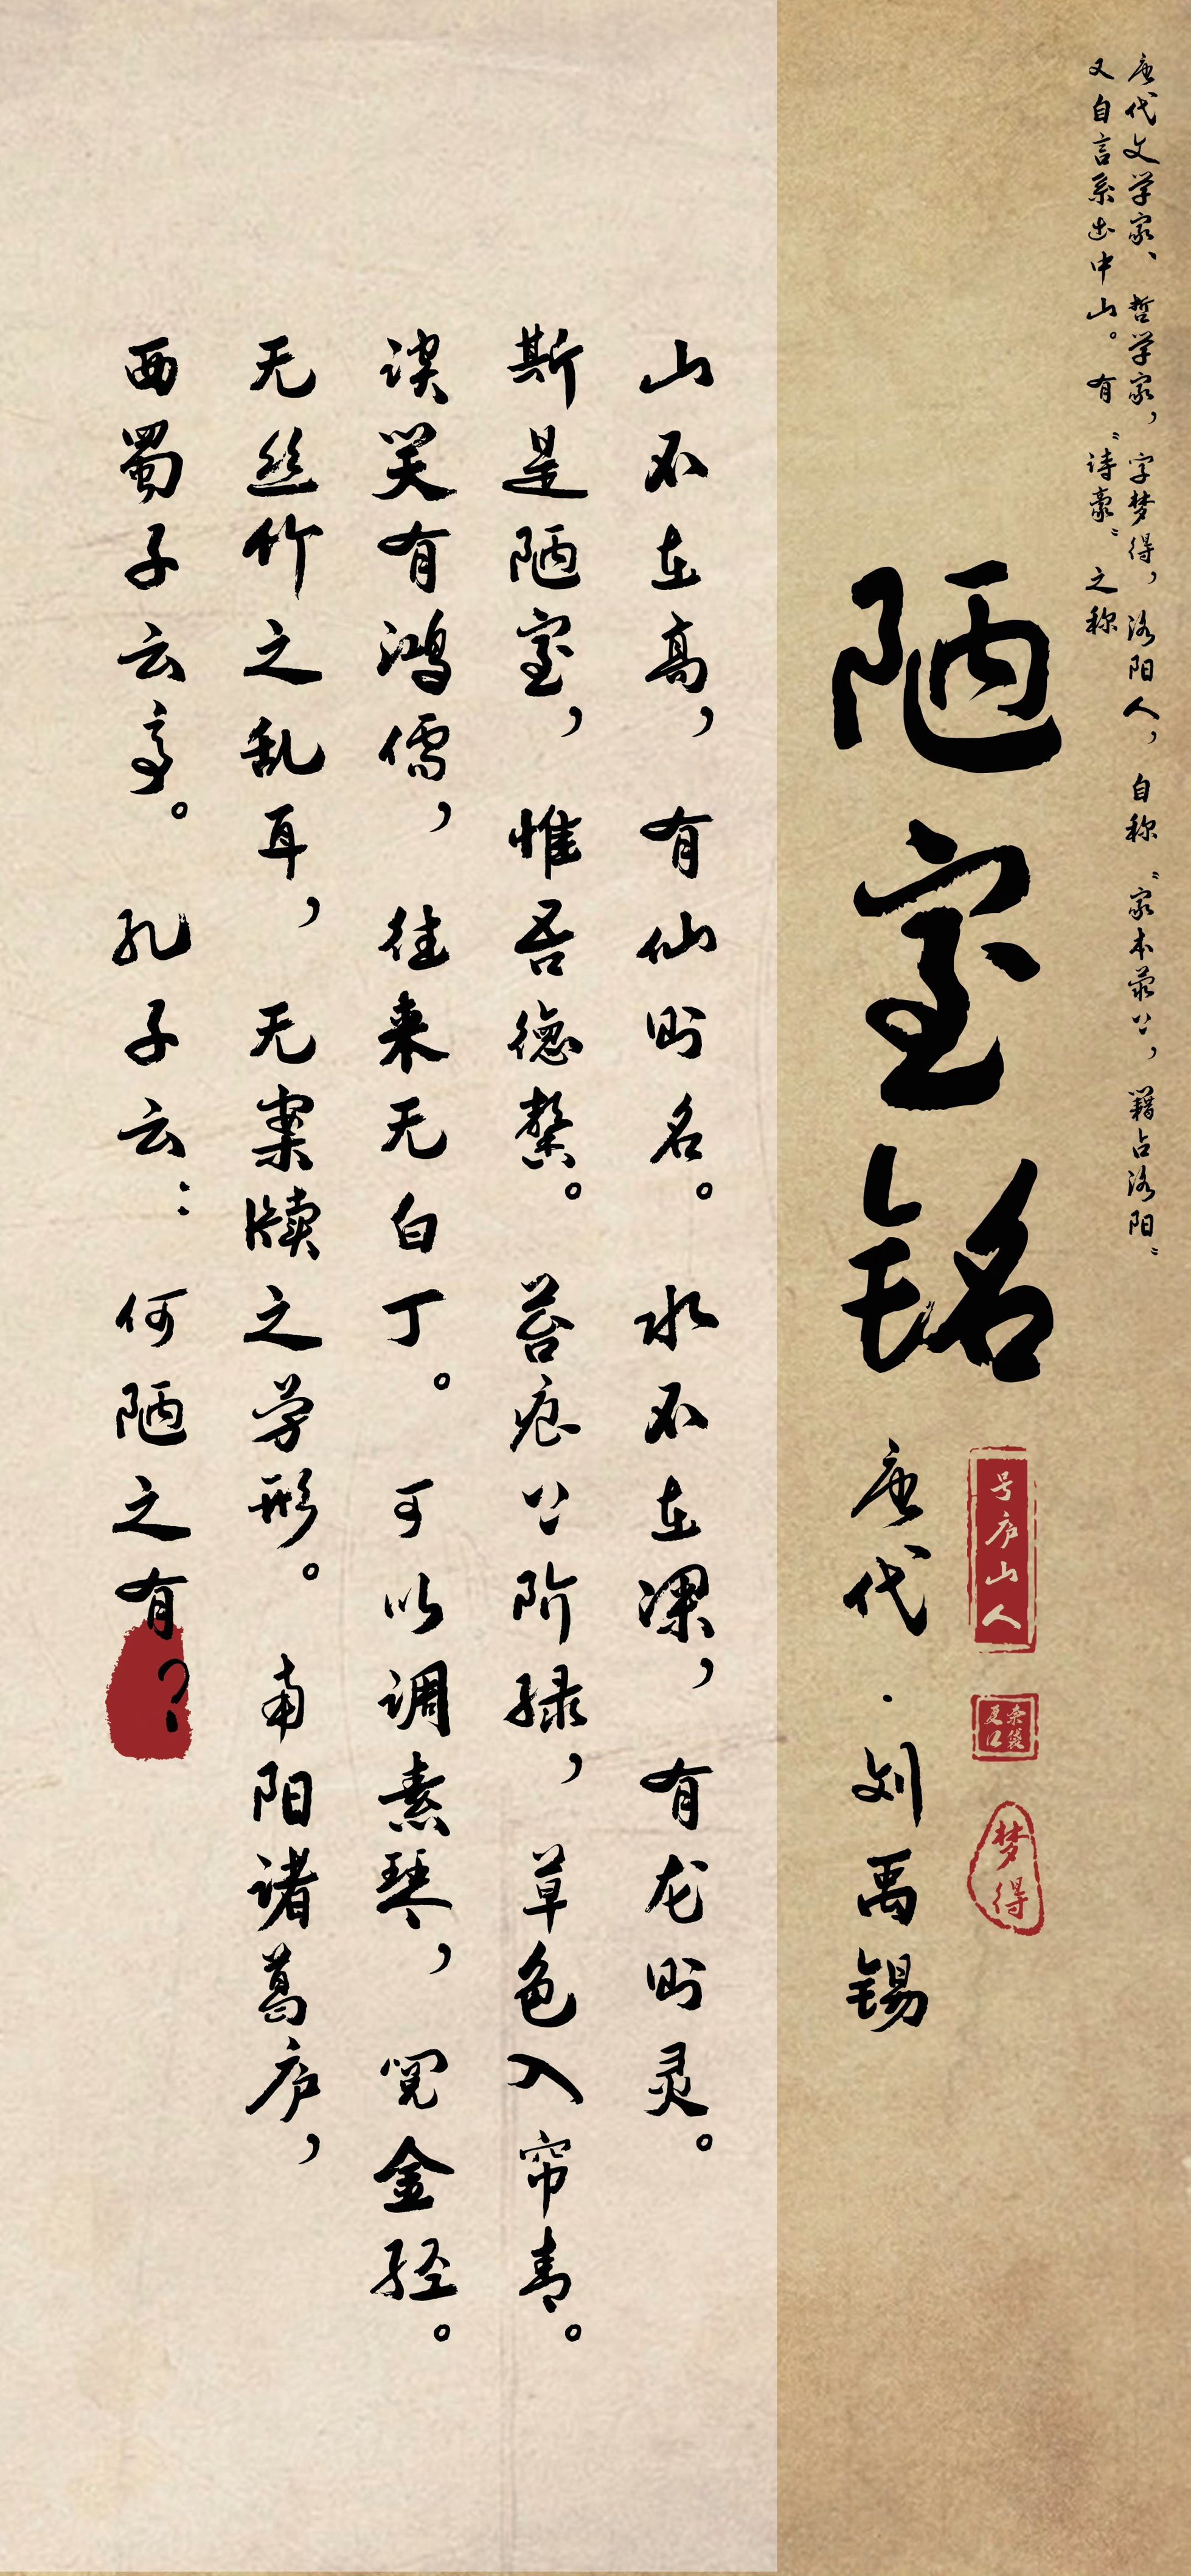 唐代文学家、哲学家，字梦得，洛阳人，自称“家本荥上，籍占洛阳”
又自言系出中山。有“诗豪”之称
陋室铭
号庐山人
梦得
唐代·刘禹锡
山不在高，有仙则名。水不在深，有龙则灵。
斯是陋室，惟吾德馨。苔痕上阶绿，草色入帘青。
谈笑有鸿儒，往来无白丁。可以调素琴，阅金经。
无丝竹之乱耳，无案牍之劳形。南阳诸葛庐，
西蜀子云亭。孔子云：何陋之有？